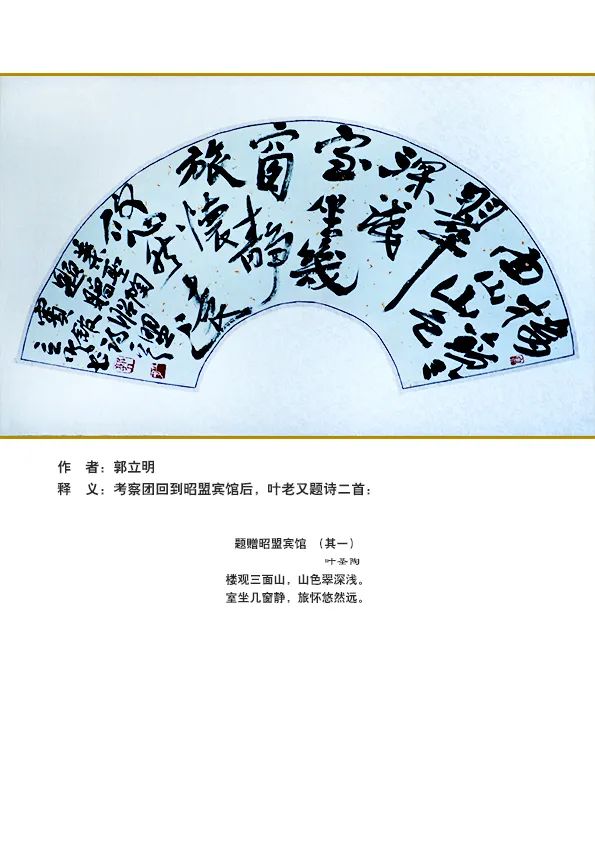 楼观三
面山山色
翠
深浅
室坐幾
窗静
旅懷
悠然
遠
葉聖陶詩
題贈昭盟
賓馆
立明书
作　者：郭立明
释　义：考察团回到昭盟宾馆后，叶老又题诗二首：
题赠昭盟宾馆　（其一）
叶圣陶
楼观三面山，山色翠深浅。
室坐几窗静，旅怀悠然远。